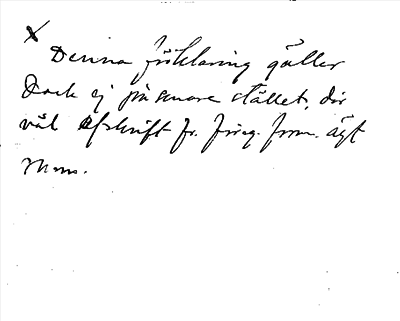 x
Denna förklaring gäller
Dock ej på senare stället, där
väl afskrift fr. föreg. form. ägt
rum.